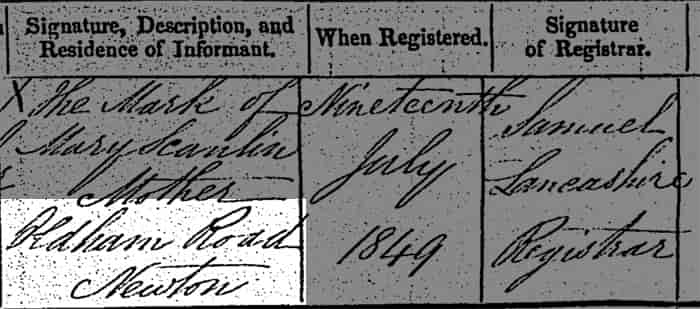 Signature, Description, and
Residence of Informant.
When Registered.
Signature
of Registrar.
X The Mark of
Mary Scanlin
Mother
Oldham Road
Newton
Nineteenth
July
1849
Samuel
Lancashire
Registrar